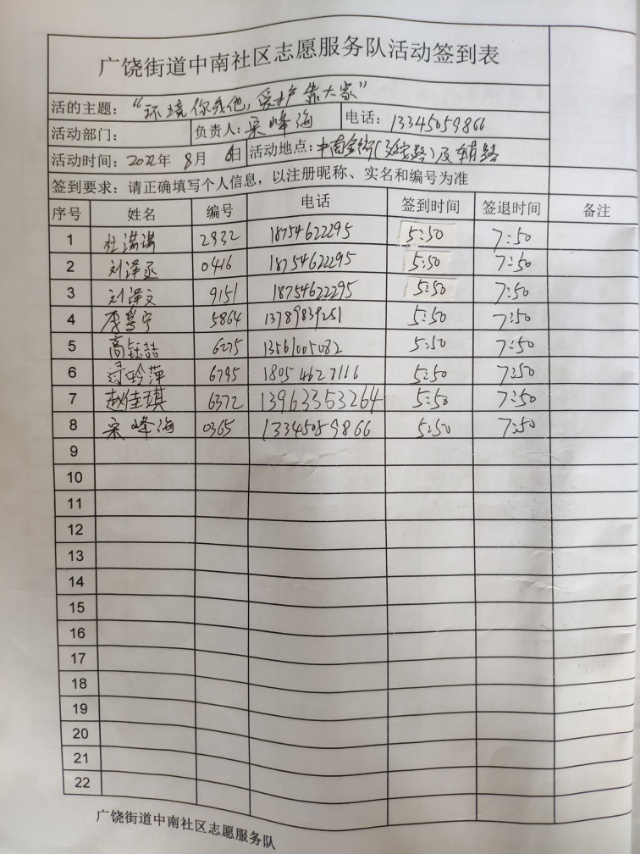 广饶街道中南社区志愿服务队活动签到表
活的主题：“环境你我他，爱护靠大家”
活动部门： 负责人：宋峰海 电话：13345059866
活动时间：2022年8月 日 活动地点：中南
签到要求：请正确填写个人信息，以注册昵称、实名和编号为准
序号 姓名 编号 电话 签到时间 签退时间 备注
1 杜潇潇 2932 18754622295 5:50 7:50
2 刘泽丞 0416 18754622295 5:50 7:50
3 刘泽文 9151 18754622295 5:50 7:50
4 李慧宁 5864 5:50 7:50
5 高钰喆 6275 13561005082 5:50 7:50
6 吟萍 6795 18054627116 5:50 7:50
7 赵佳琪 6372 13963353264 5:50 7:50
8 宋峰海 0365 13345059866 5:50 7:50
9
10
11
12
13
14
15
16
17
18
19
20
21
22
广饶街道中南社区志愿服务队